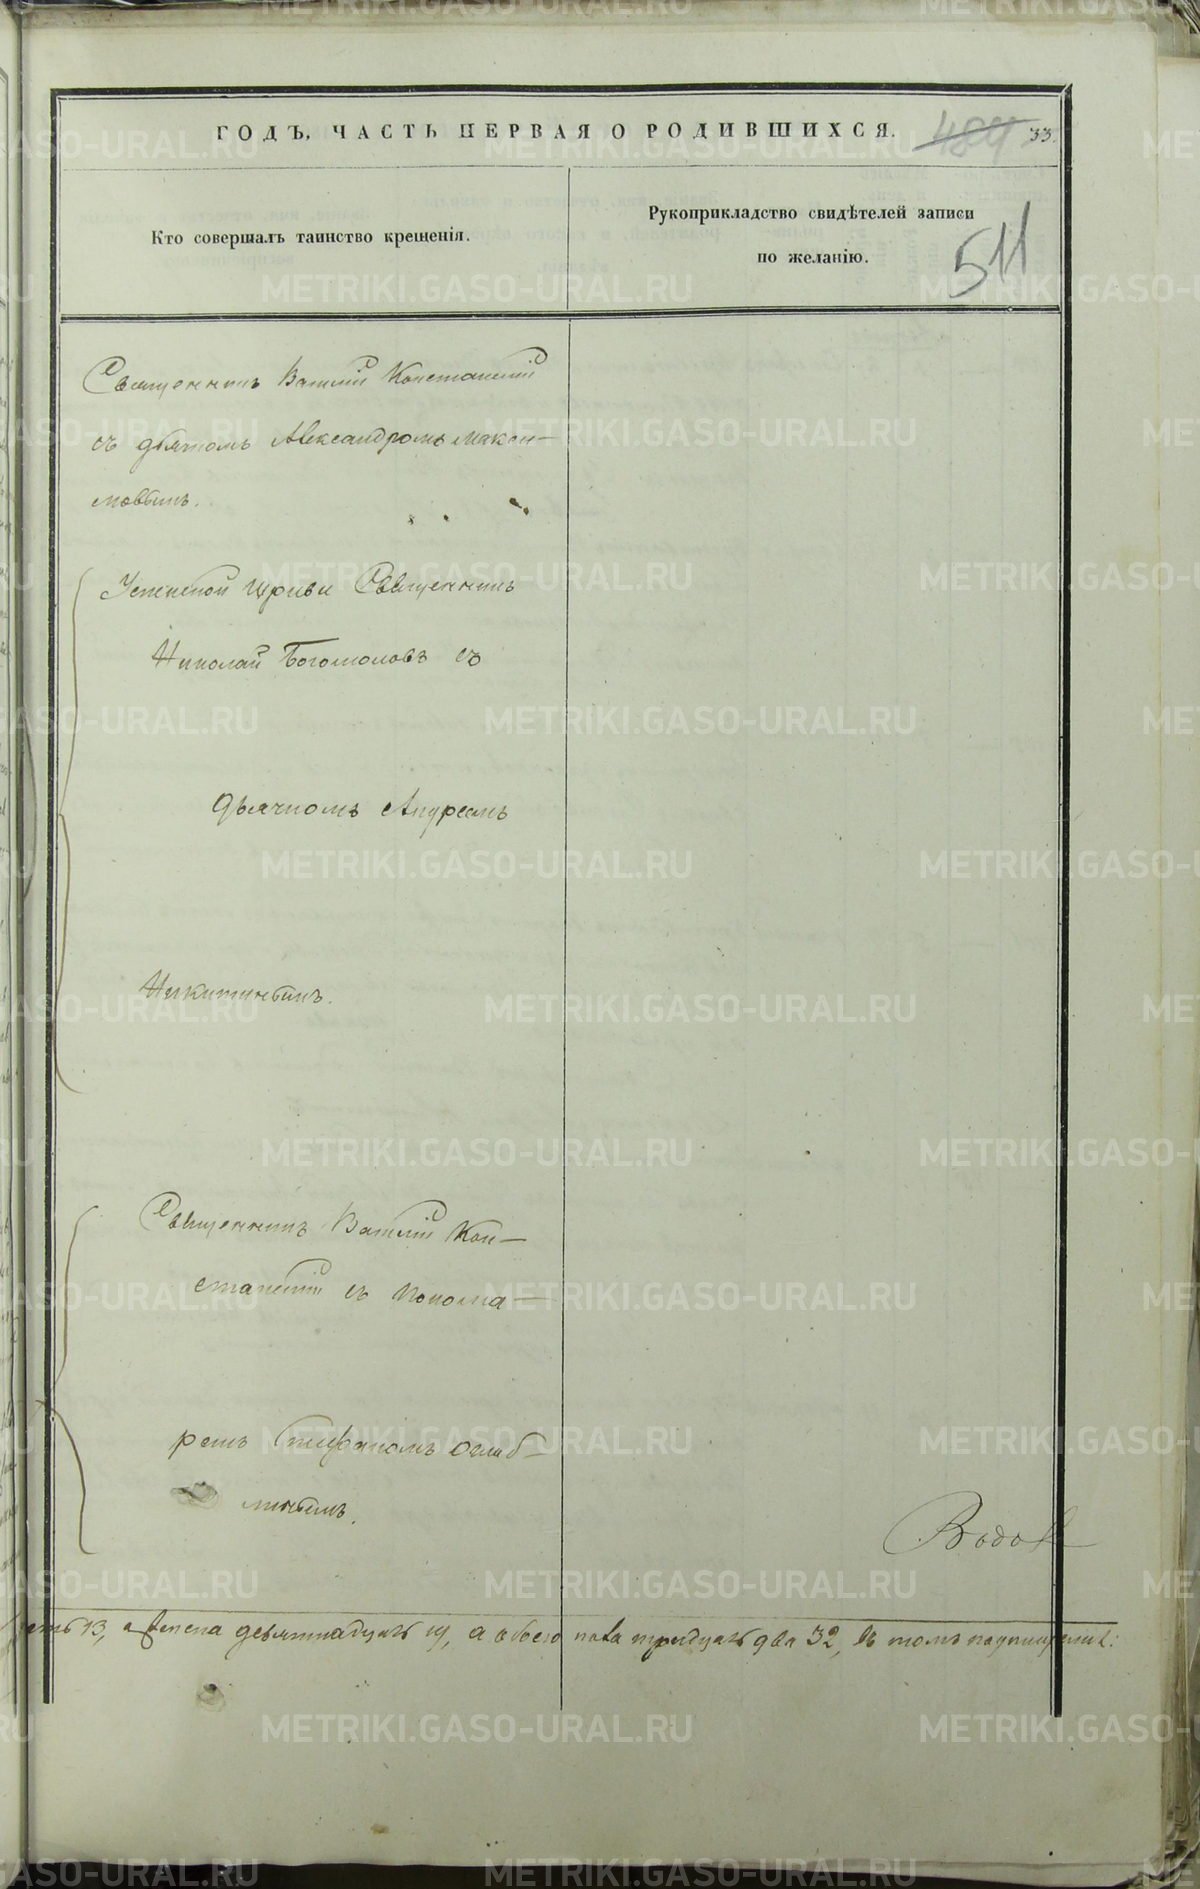 ГОДЪ. ЧАСТЬ ПЕРВАЯ О РОДИВШИХСЯ.
484 33.
Кто совершалъ таинство крещенія.
Рукоприкладство свидѣтелей записи
по желанію.
511
Священникъ Василій
съ дьячкомъ Александромъ Макси-
мовымъ.
Успенской Церкви Священникъ
Николай Богомоловъ съ
дьячкомъ Андреемъ
Никитинымъ.
Священникъ Василій Кон-
съ Понома-
ремъ Стефаномъ
Водо
13, а женска девятнадцать 19, а обоего пола тридцать два 32, въ томъ
METRIKI.GASO-URAL.RU